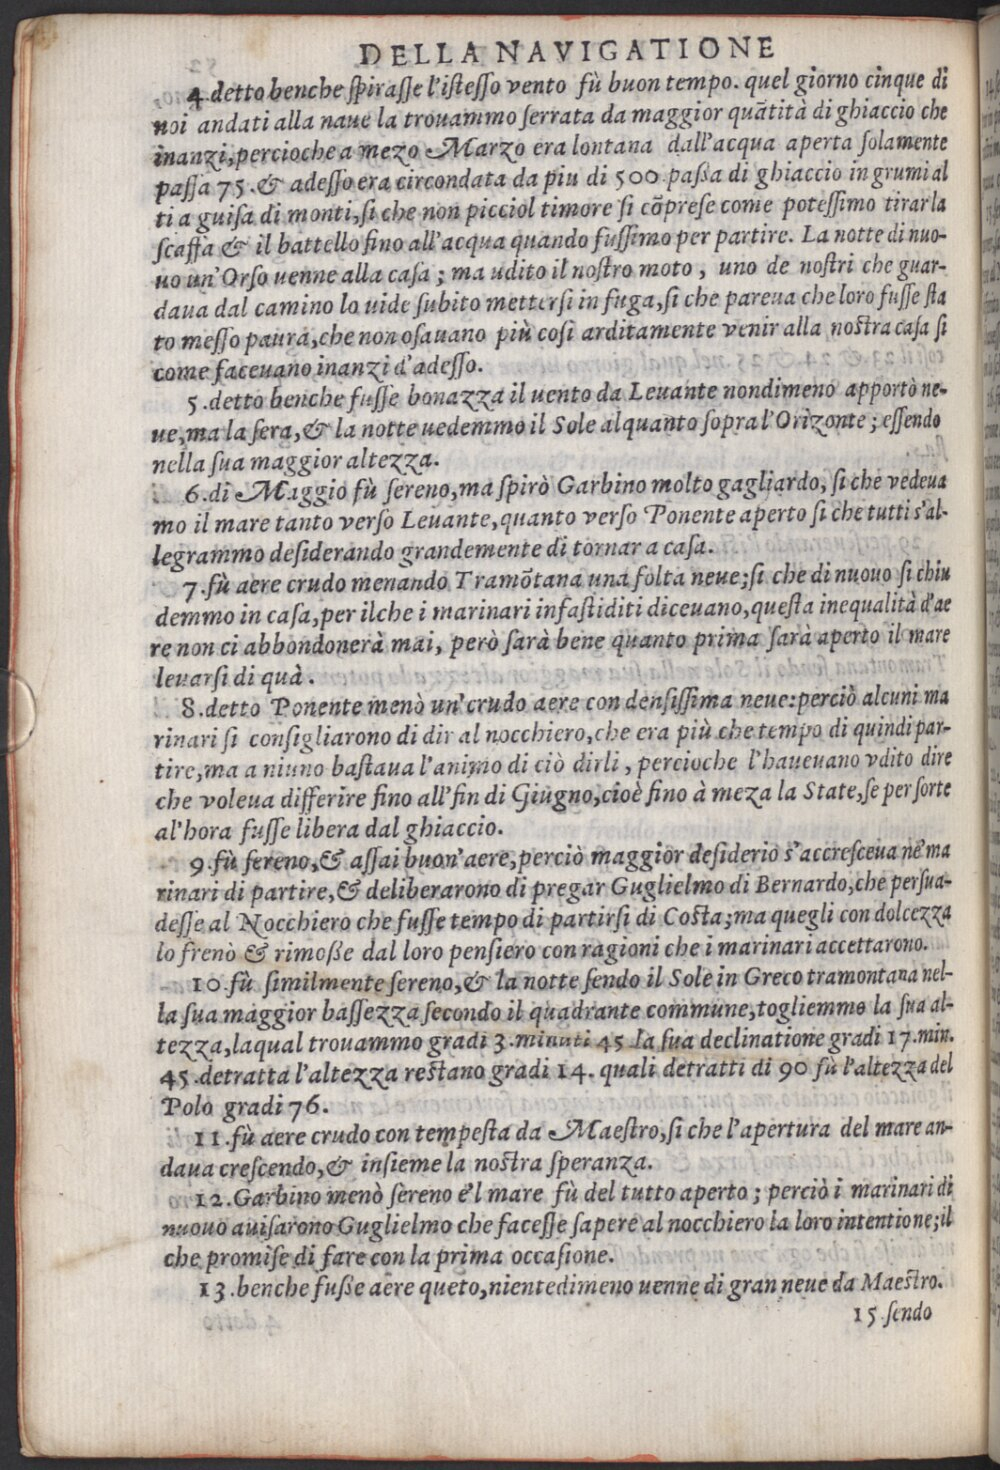 DELLA NAVIGATIONE
4. detto benche ſpiraſſe l'iſteſſo vento fù buon tempo. quel giorno cinque di
noi andati alla naue la trouammo ſerrata da maggior quātità di ghiaccio che
inanzi, percioche a mezo Marzo era lontana dall'acqua aperta ſolamente
paſſa 75. & adeſſo era circondata da piu di 500 paßa di ghiaccio in grumi al
ti a guiſa di monti, ſi che non picciol timore ſi cōpreſe come poteſſimo tirar la
ſcaffa & il battello fino all'acqua quando fuſſimo per partire. La notte di nuo-
uo un'Orſo uenne alla caſa; ma udito il noſtro moto, uno de noſtri che guar-
daua dal camino lo uide ſubito metterſi in fuga, ſi che pareua che loro fuſſe ſta
to meſſo paura, che non oſauano più coſi arditamente venir alla noſtra caſa ſi
come faceuano inanzi d'adeſſo.
5. detto benche fuſſe bonazza il uento da Leuante nondimeno apportò ne-
ue, ma la ſera, & la notte uedemmo il Sole alquanto ſopra l'Orizonte; eſſendo
nella ſua maggior altezza.
6. di Maggio fù ſereno, ma ſpirò Garbino molto gagliardo, ſi che vedeua
mo il mare tanto verſo Leuante, quanto verſo Ponente aperto ſi che tutti s'al-
legrammo deſiderando grandemente di tornar a caſa.
7. fù aere crudo menando Tramōtana una folta neue; ſi che di nuouo ſi chiu
demmo in caſa, per ilche i marinari infaſtiditi diceuano, queſta inequalità d'ae
re non ci abbondonerà mai, però ſarà bene quanto prima ſarà aperto il mare
leuarſi di quà.
8. detto Ponente menò un'crudo aere con denſiſſima neue: perciò alcuni ma
rinari ſi conſigliarono di dir al nocchiero, che era più che tempo di quindi par-
tire, ma a niuno baſtaua l'animo di ciò dirli, percioche l'haueuano vdito dire
che voleua differire fino all'fin di Giugno, cioè fino à meza la State, ſe per ſorte
al'hora fuſſe libera dal ghiaccio.
9. fù ſereno, & aſſai buon'aere, perciò maggior deſiderio s'accreſceua ne'ma
rinari di partire, & deliberarono di pregar Guglielmo di Bernardo, che perſua-
deſſe al Nocchiero che fuſſe tempo di partirſi di Coſta; ma quegli con dolcezza
lo frenò & rimoße dal loro penſiero con ragioni che i marinari accettarono.
10. fù ſimilmente ſereno, & la notte ſendo il Sole in Greco tramontana nel-
la ſua maggior baſſezza ſecondo il quadrante commune, togliemmo la ſua al-
tezza, laqual trouammo gradi 3. minuti 45 la ſua declinatione gradi 17. min.
45. detratta l'altezza reſtano gradi 14. quali detratti di 90 fù l'altezza del
Polo gradi 76.
11. fù aere crudo con tempeſta da Maeſtro, ſi che l'apertura del mare an-
daua creſcendo, & inſieme la noſtra ſperanza.
12. Garbino menò ſereno e'l mare fù del tutto aperto; perciò i marinari di
nuouo auiſarono Guglielmo che faceſſe ſapere al nocchiero la loro intentione; il
che promiſe di fare con la prima occaſione.
13. benche fuße aere queto, nientedimeno uenne di gran neue da Maeſtro.
15. ſendo